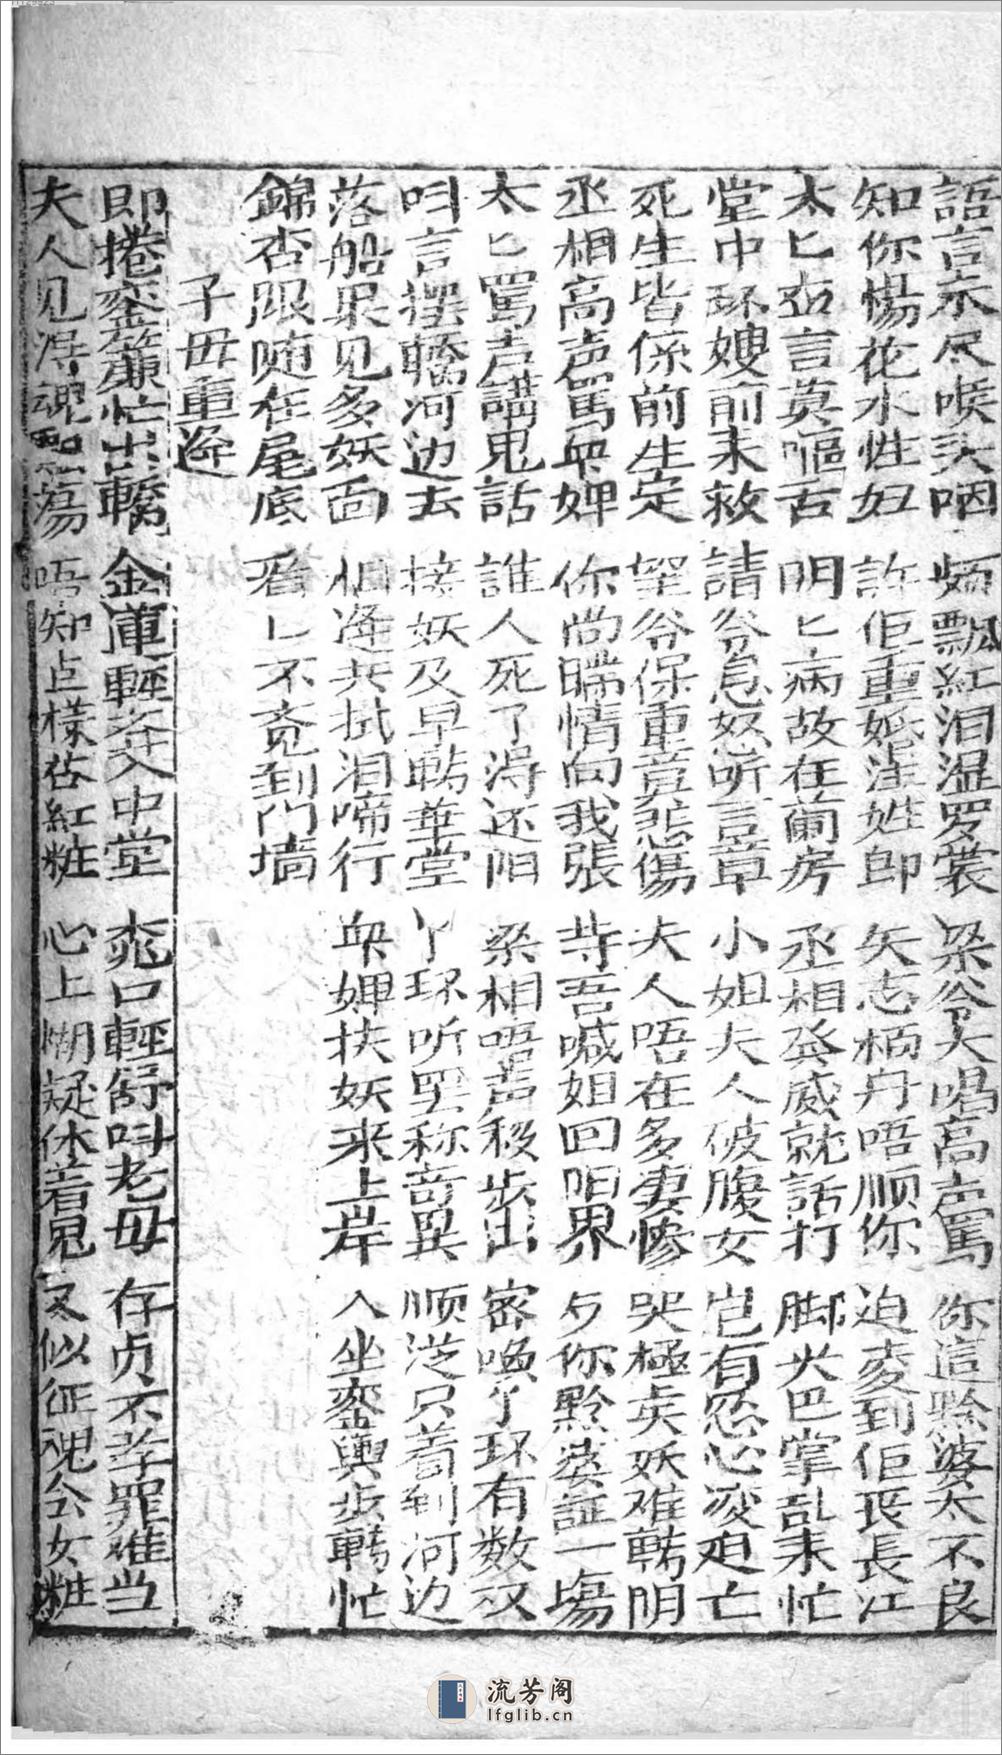 語言未尽喉头咽 炳飘紅泪湿罗裳 梁爷大喝高声罵 你這黔婆太不良
知你惕花水性妇 許佢重婚淫姓郎 矢志柄丹唔顺你 迫凌到佢丧長江
太匕力言莫嘔舌 明匕病故在蘭房 丞相癸威就話打 脚尖巴掌乱来忙
堂中环嫂前来救 請爷息怒听言章 小姐夫人破腹女 岂有忍心凌迫亡
死生皆係前生定 望爷保重莫悲傷 夫人唔在多妻惨 哭極嬌妖难轉阴
丞相高声罵奀婢 你尚瞒情向我張 恃吾喊姐回阳界 歺你黔婆証一場
太匕罵声講鬼話 誰人死了淂还阳 梁相唔声移步出 密喚了环有数双
呌言摆轎河边去 接妖及早轉華堂 丫环听罢称奇異 顺泛只着到河边
落船果见多妖面 相逢共拭泪啼行 奀婢扶妖来上岸 入坐銮輿步轉忙
錦杏跟随在尾底 看匕不竟到门墙
子毋重逄
即捲銮簾忙出轎 金蓮輕交入中堂 窕口輕舒呌老毋 存贞不孝罪难当
夫人见淂魂飘荡 唔知点樣佔紅粧 心上糊疑休着鬼 又似征魂公女粧
流芳阁
lfglib.cn